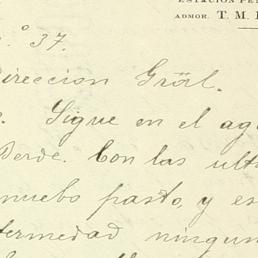 ESTACION PE
ADMOR. T. M. 
º 37.
Direccion Gräl.
Sigue en el ag
Verde. Con las ult
nuebo pasto, y es
fermedad ningun